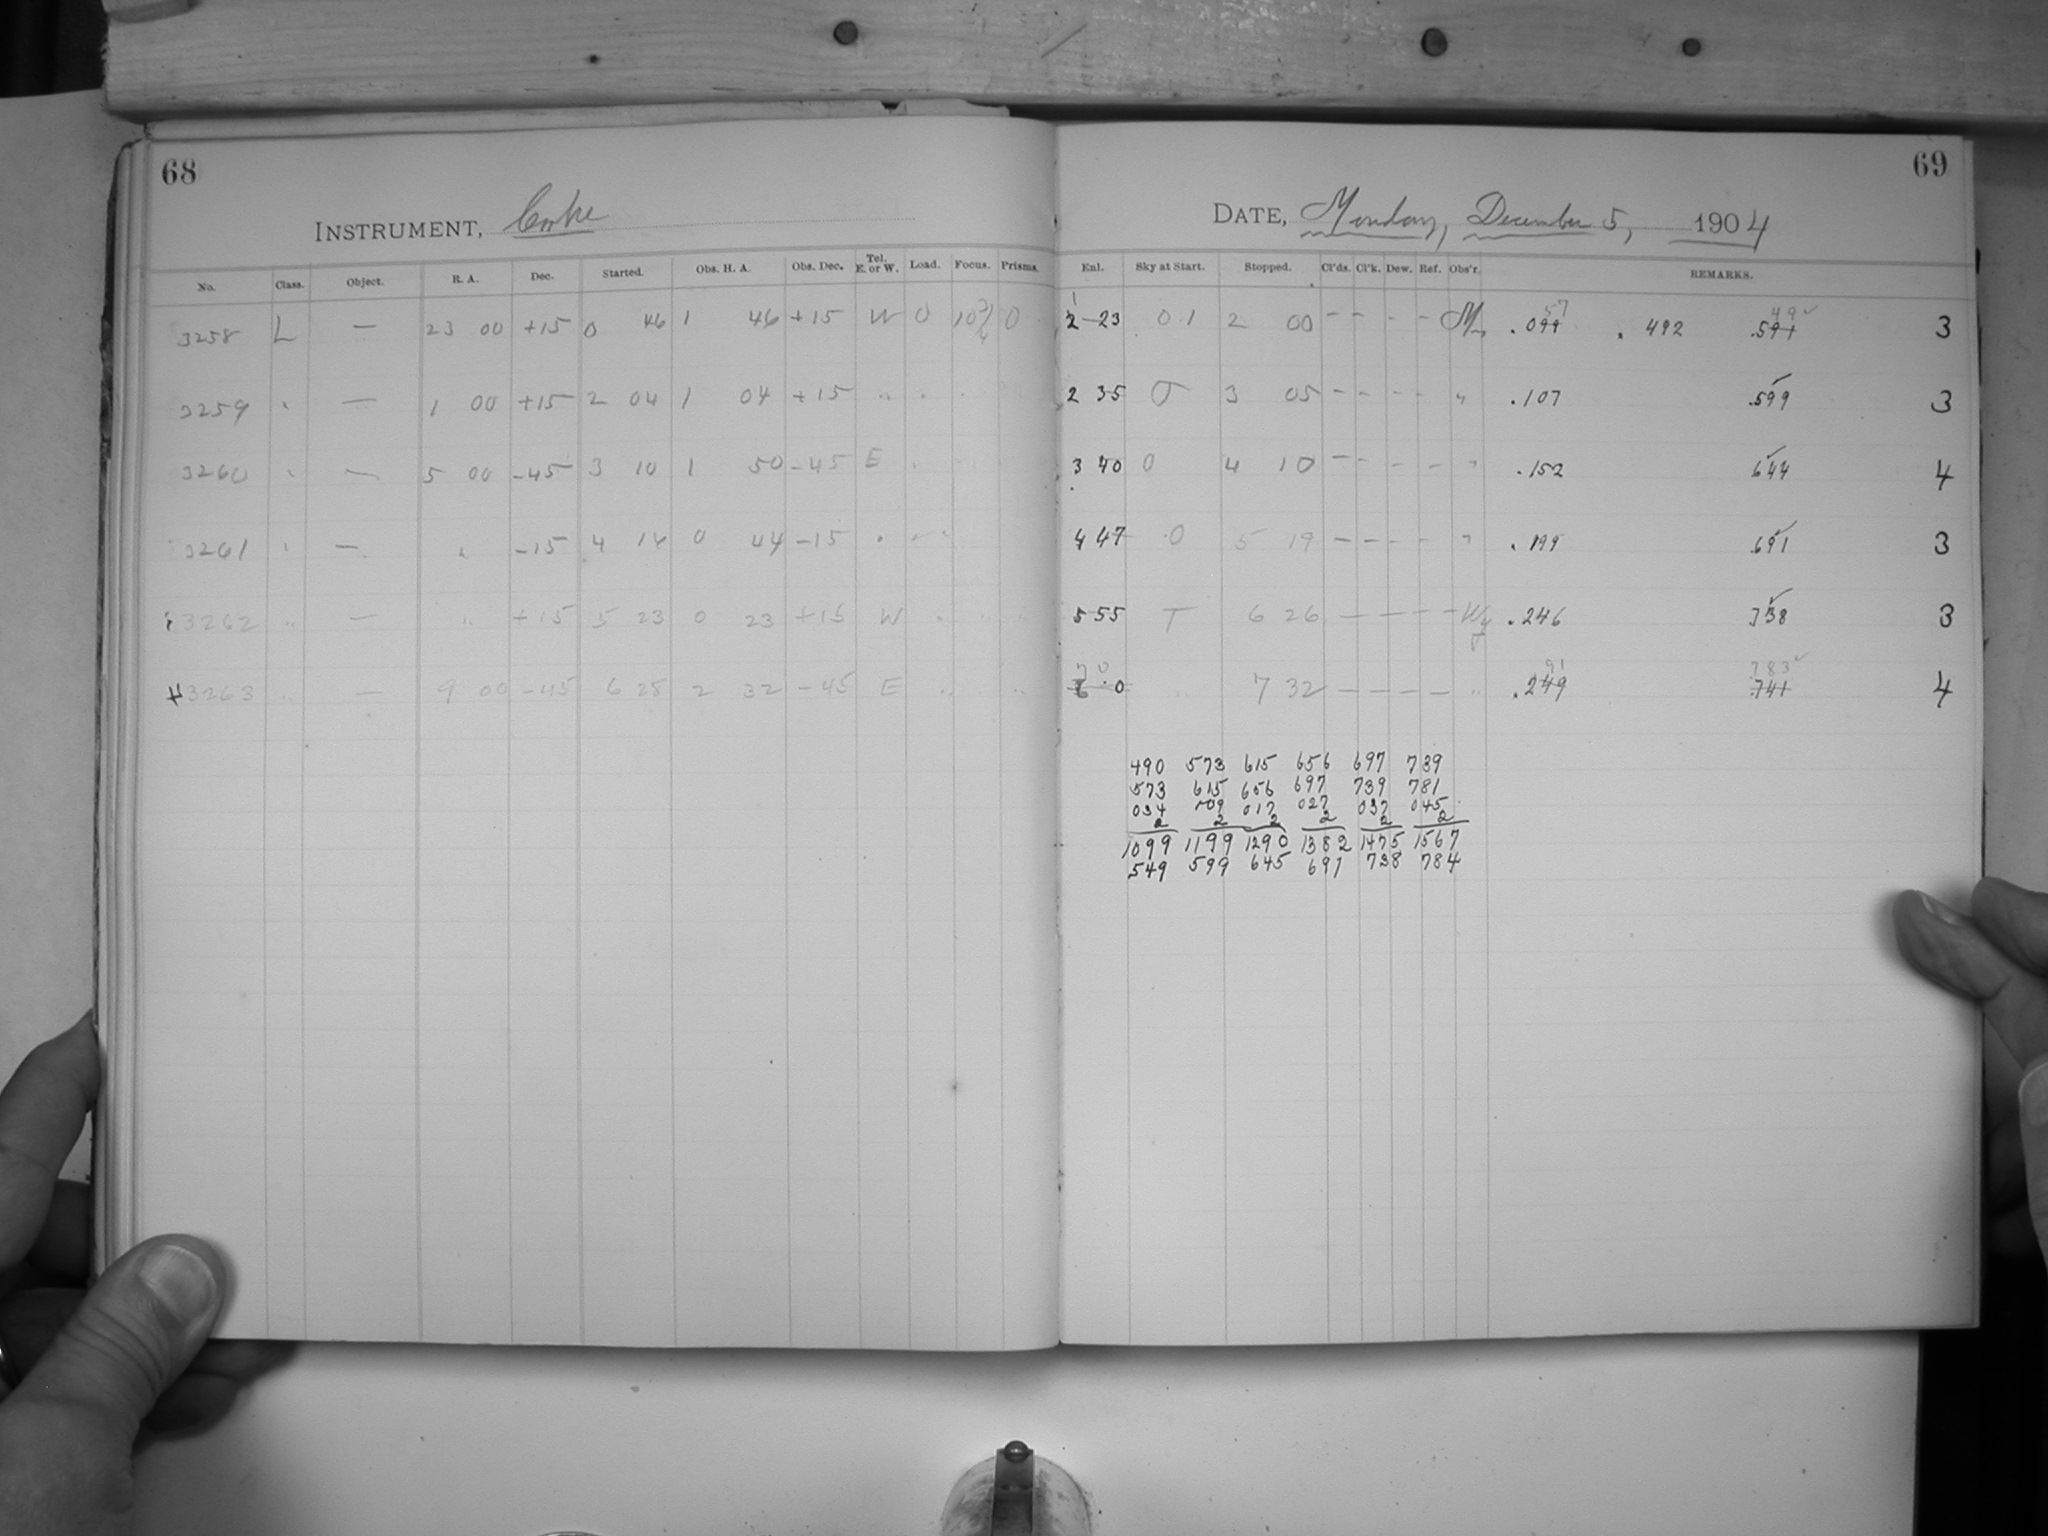 68
INSTRUMENT, Cooke
No. Class. Object. R. A. Dec. Started. Obs. H. A. Obs. Dec. Tel. E. or W. Load. Focus. Prisms.
3258 L — 23 00 +15 0 46 1 46 +15 W 0 10 3/4 0
3259 " — 1 00 +15 2 04 1 04 +15 " " "
3260 " — 5 00 -45 3 10 1 50 -45 E "
3261 " — " -15 4 14 0 44 -15 " "
3262 " — " +15 5 23 0 23 +15 W " " "
3263 " — 9 00 -45 6 28 2 32 -45 E " "
69
DATE, Monday, December 5, 1904
Enl. Sky at Start. Stopped. Cl'ds. Cl'k. Dew. Ref. Obs'r. REMARKS.
1 57 49 ✓
2 23 01 2 00 - - - - M .099 . 492 .591 3
2 35 0 3 05 - - - - " .107 .599 ✓ 3
3 40 0 4 10 - - - - " .152 644 ✓ 4
4 47 0 5 19 - - - - " .199 691 ✓ 3
5 55 T 6 26 — — — — .246 738 ✓ 3
7 0 91 783 ✓
6 0 " 7 32 — — — — " .249 .741 4
490 573 615 656 697 739
573 615 656 697 739 781
034 009 017 027 037 045
2 2 2 2 2 2
1099 1199 1290 1382 1475 1567
549 599 645 691 738 784